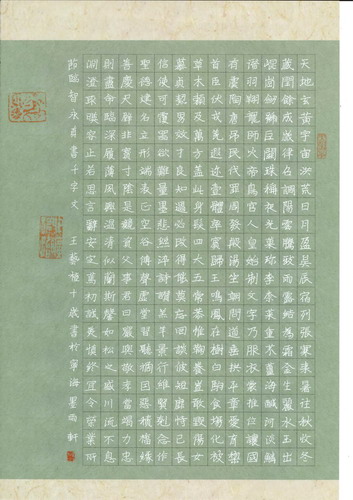 天地玄黄宇宙洪荒日月盈昃辰宿列張寒来暑往秋收冬
藏閏餘成歲律召調陽雲騰致雨露結為霜金生麗水玉出
崐崗劍號巨闕珠稱夜光菓珍李柰菜重芥薑海鹹河淡鱗
潛羽翔龍師火帝鳥官人皇始制文字乃服衣裳推位讓國
有虞陶唐弔民伐罪周發殷湯坐朝問道垂拱平章愛育黎
首臣伏戎羌遐邇壹體率賓歸王鳴鳳在樹白駒食場化被
草木賴及萬方蓋此身髮四大五常恭惟鞠養豈敢毀傷女
慕貞絜男效才良知過必改得能莫忘罔談彼短靡恃己長
信使可覆器欲難量墨悲絲染詩讚羔羊景行維賢剋念作
聖德建名立形端表正空谷傳聲虛堂習聽禍因惡積福緣
善慶尺璧非寶寸陰是競資父事君曰嚴與敬孝當竭力忠
則盡命臨深履薄夙興溫凊似蘭斯馨如松之盛川流不息
淵澄取暎容止若思言辭安定篤初誠美慎終宜令榮業所
節臨智永真書千字文 王藝桓十歲書於寧海墨雨軒